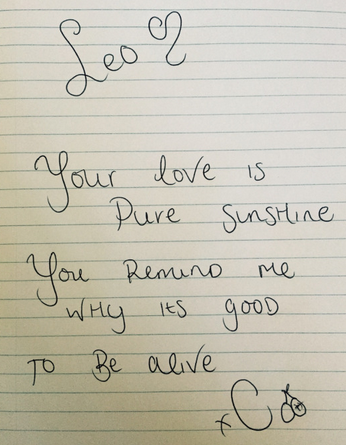 Leo
Your love is
Pure Sunshine
You Remind me
Why its good
To Be alive
x C